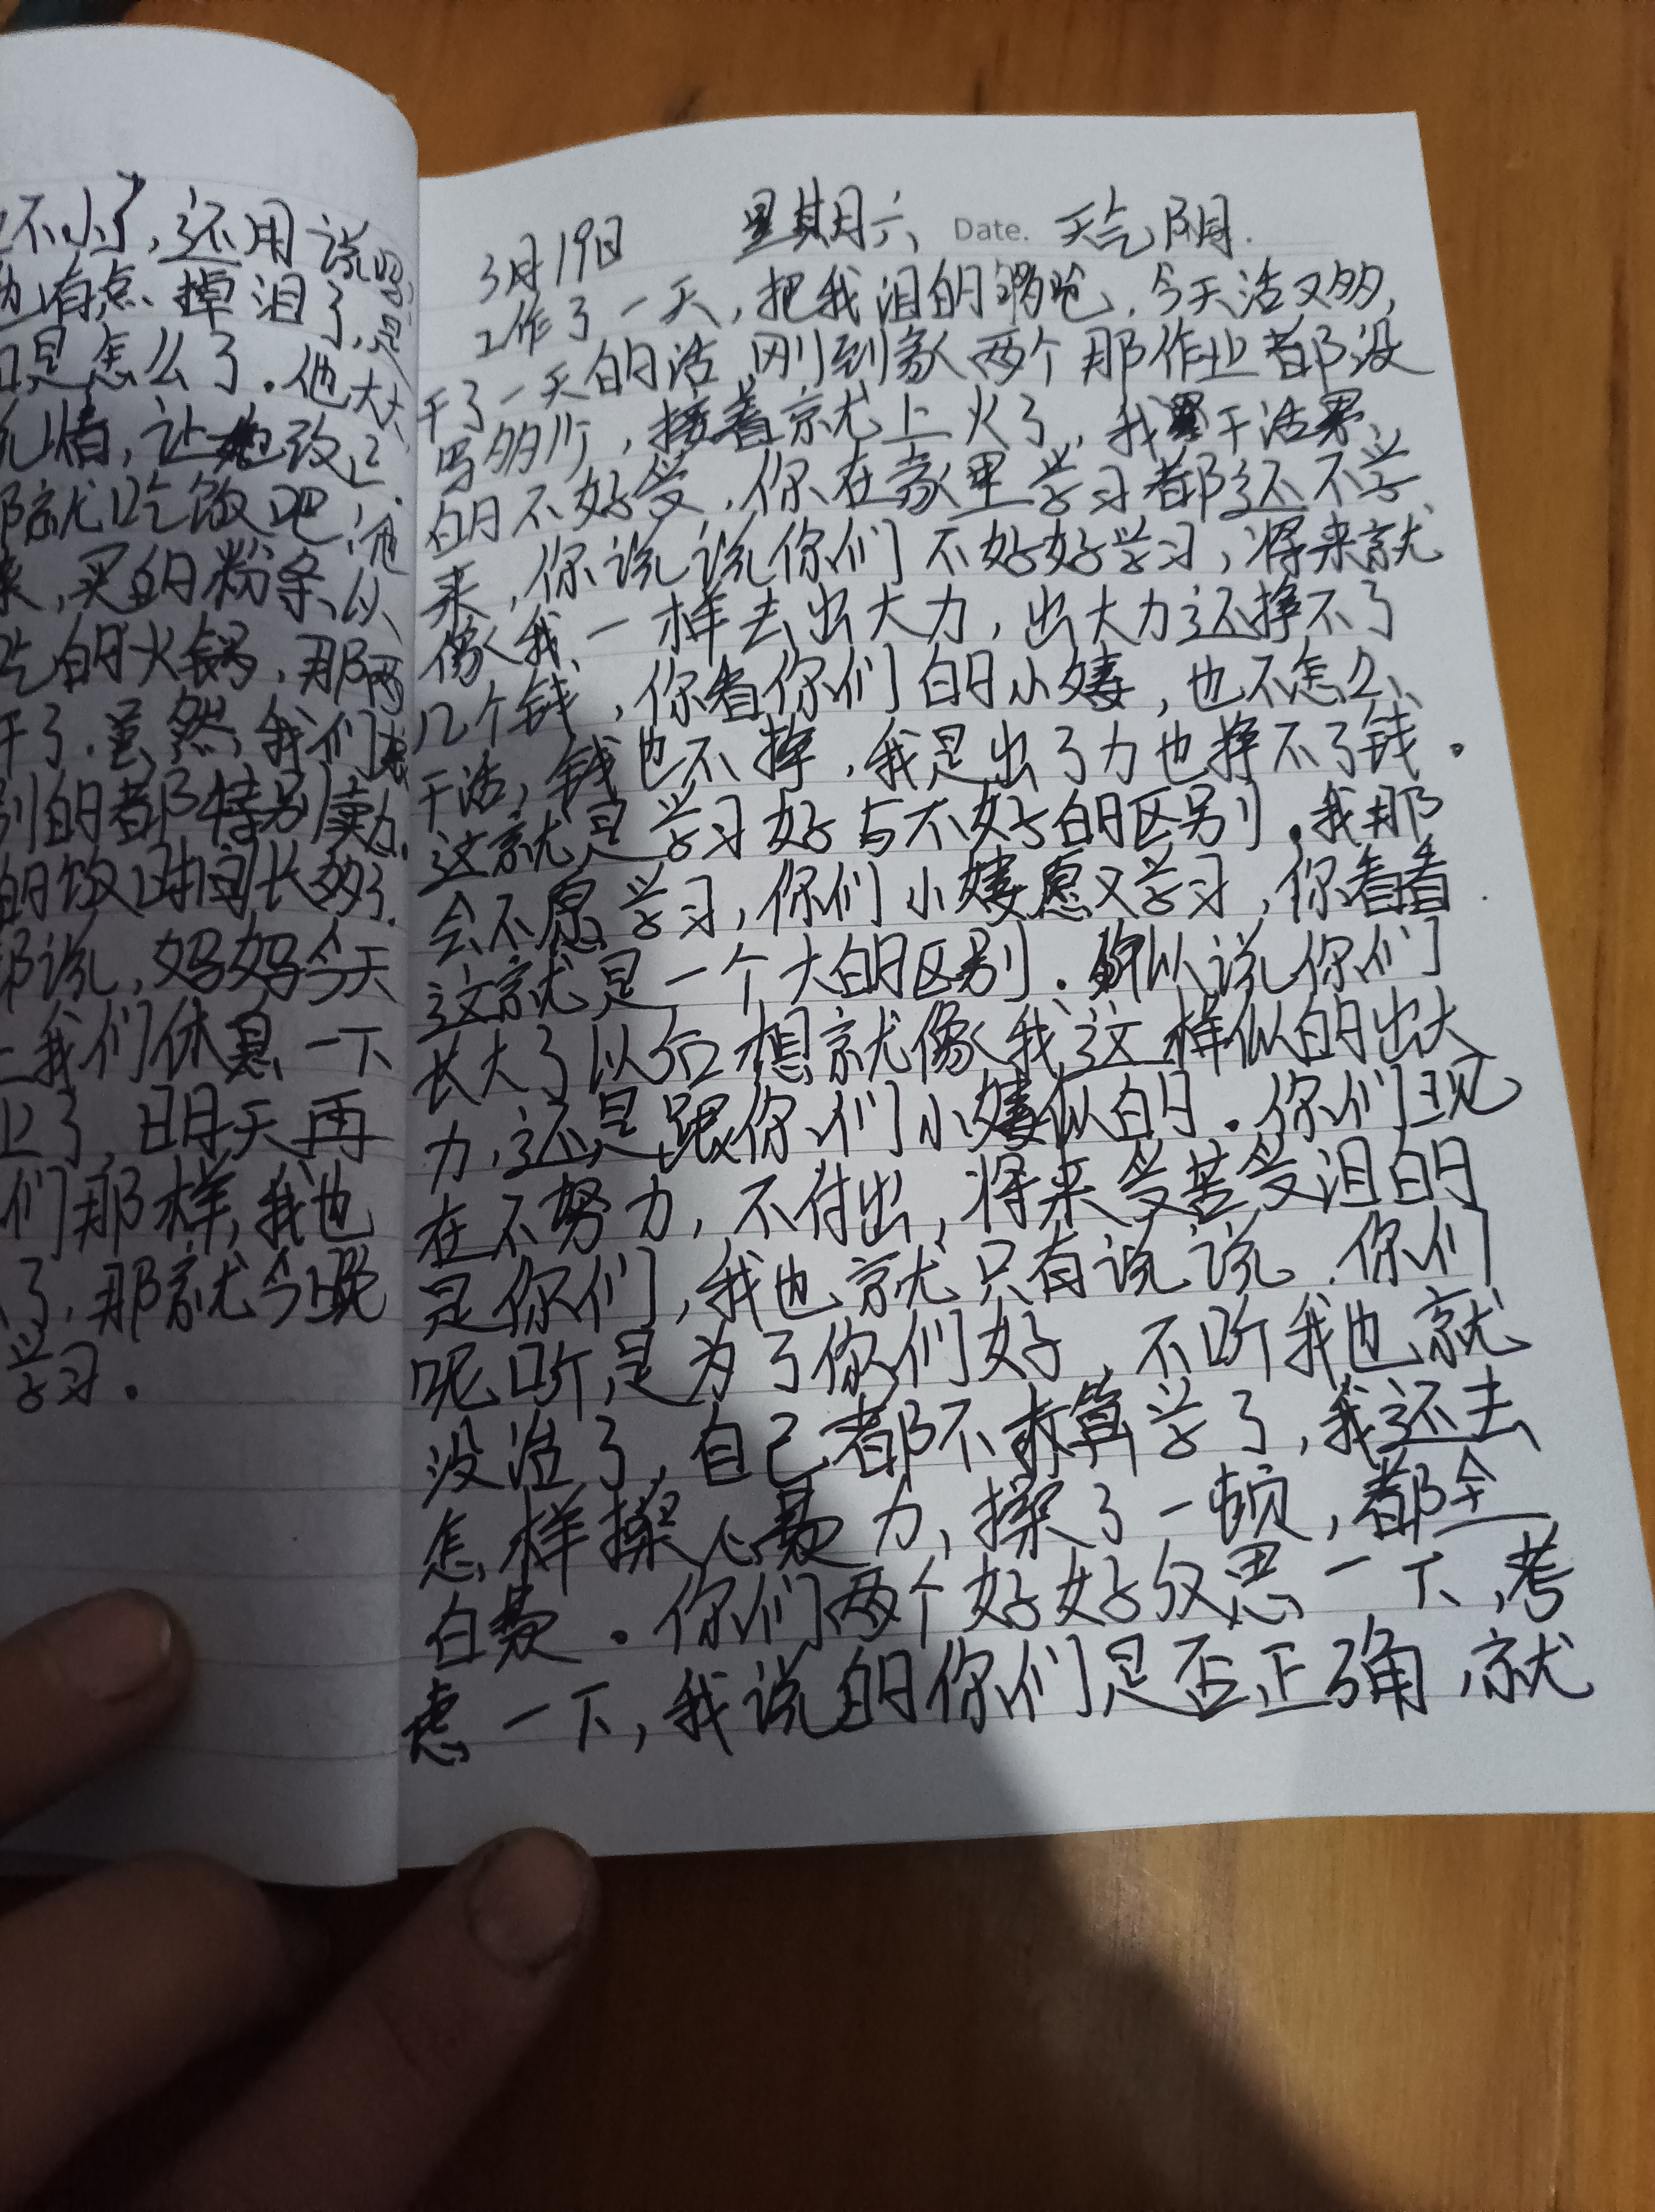 不小了,还用说
也有点掉泪了,
是怎么了.他大
情,让她改正.
就吃饭吧,
来,买的粉条,以
吃的火锅,那两
干了.虽然,我们
别的都特别卖力.
的饭时间长多了.
那说,妈妈今天
我们休息一下
了,明天再
们那样,我也
了,那就今晚
学习.
3月19日 星期六 Date. 天气阴.
工作了一天,把我泪的呛,今天活又多,
干了一天的活,刚到家两个那作业都没
写多少,接着就上火了,我干活累
的不好受,你在家里学习都还不学
来,你说说你们不好好学习,将来就
像我一样去出大力,出大力还挣不了
几个钱,你看你们的小婕,也不怎么
干活,钱也不挣,我是出了力也挣不了钱.
这就是学习好与不好的区别.我那
会不愿学习,你们小婕愿又学习,你看看
这就是一个大的区别.所以说你们
长大了以后想就像我这样似的出大
力,还是跟你们小婕似的.你们现
在不努力,不付出,将来受苦受泪的
是你们,我也就只有说说.你们
呢听,是为了你们好,不听我也就
没治了,自己都不打算学了,我还去
怎样操心费力,操了一顿,都全
白费.你们两个好好反思一下,考
虑一下,我说的你们是否正确,就